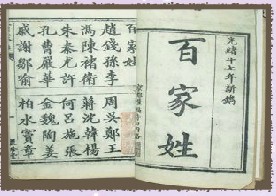 光緒十七年新鐫
百家姓
百家姓
趙錢孫李 周吳鄭王
馮陳褚衛 蔣沈韓楊
朱秦尤許 何呂施張
孔曹嚴華 金魏陶姜
戚謝鄒喻 柏水竇章